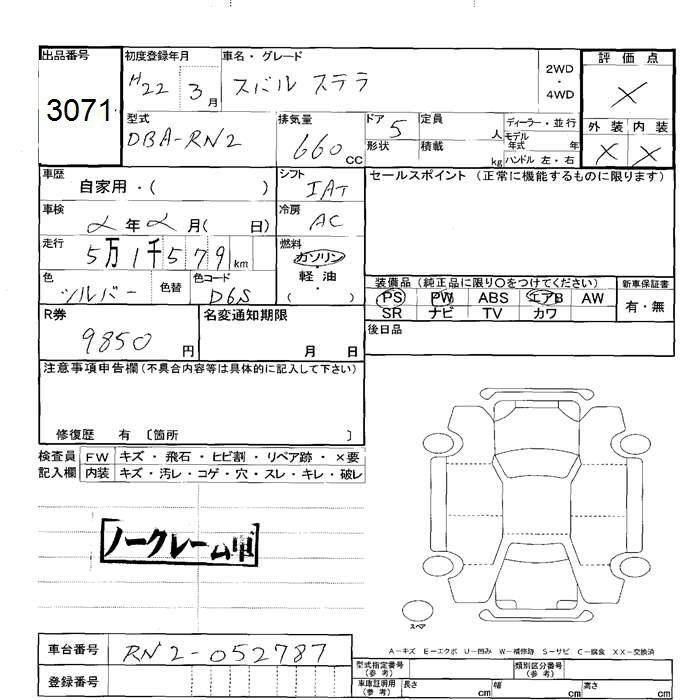 出品番号 3071
初度登録年月 H22 3月
車名・グレード スバル ステラ
2WD・4WD
評価点 ×
外装 内装
× ×
型式 DBA-RN2
排気量 660cc
ドア 5
形状
定員 人
積載 kg
ディーラー・並行
モデル年式 年
ハンドル 左・右
車歴 自家用・( )
シフト IAT
セールスポイント (正常に機能するものに限ります)
車検 2年2月( 日)
冷房 AC
走行 5万1千579km
燃料 ガソリン・軽油・( )
色 シルバー 色替
色コード D6S
装備品 (純正品に限り○をつけてください)
PS PW ABS エアB AW
SR ナビ TV カワ
新車保証書
有・無
R券 9850円
名変通知期限 月 日
後日品
注意事項申告欄(不具合内容等は具体的に記入して下さい)
修復歴 有 〔箇所 〕
検査員記入欄
FW キズ・飛石・ヒビ割・リペア跡・×要
内装 キズ・汚レ・コゲ・穴・スレ・キレ・破レ
ノークレーム車
スペア
A-キズ E-エクボ U-凹み W-補修跡 S-サビ C-腐食 XX-交換済
車台番号 RN2-052787
登録番号
型式指定番号(参考)
類別区分番号(参考)
車庫証明用(参考) 長さ cm 幅 cm 高さ cm